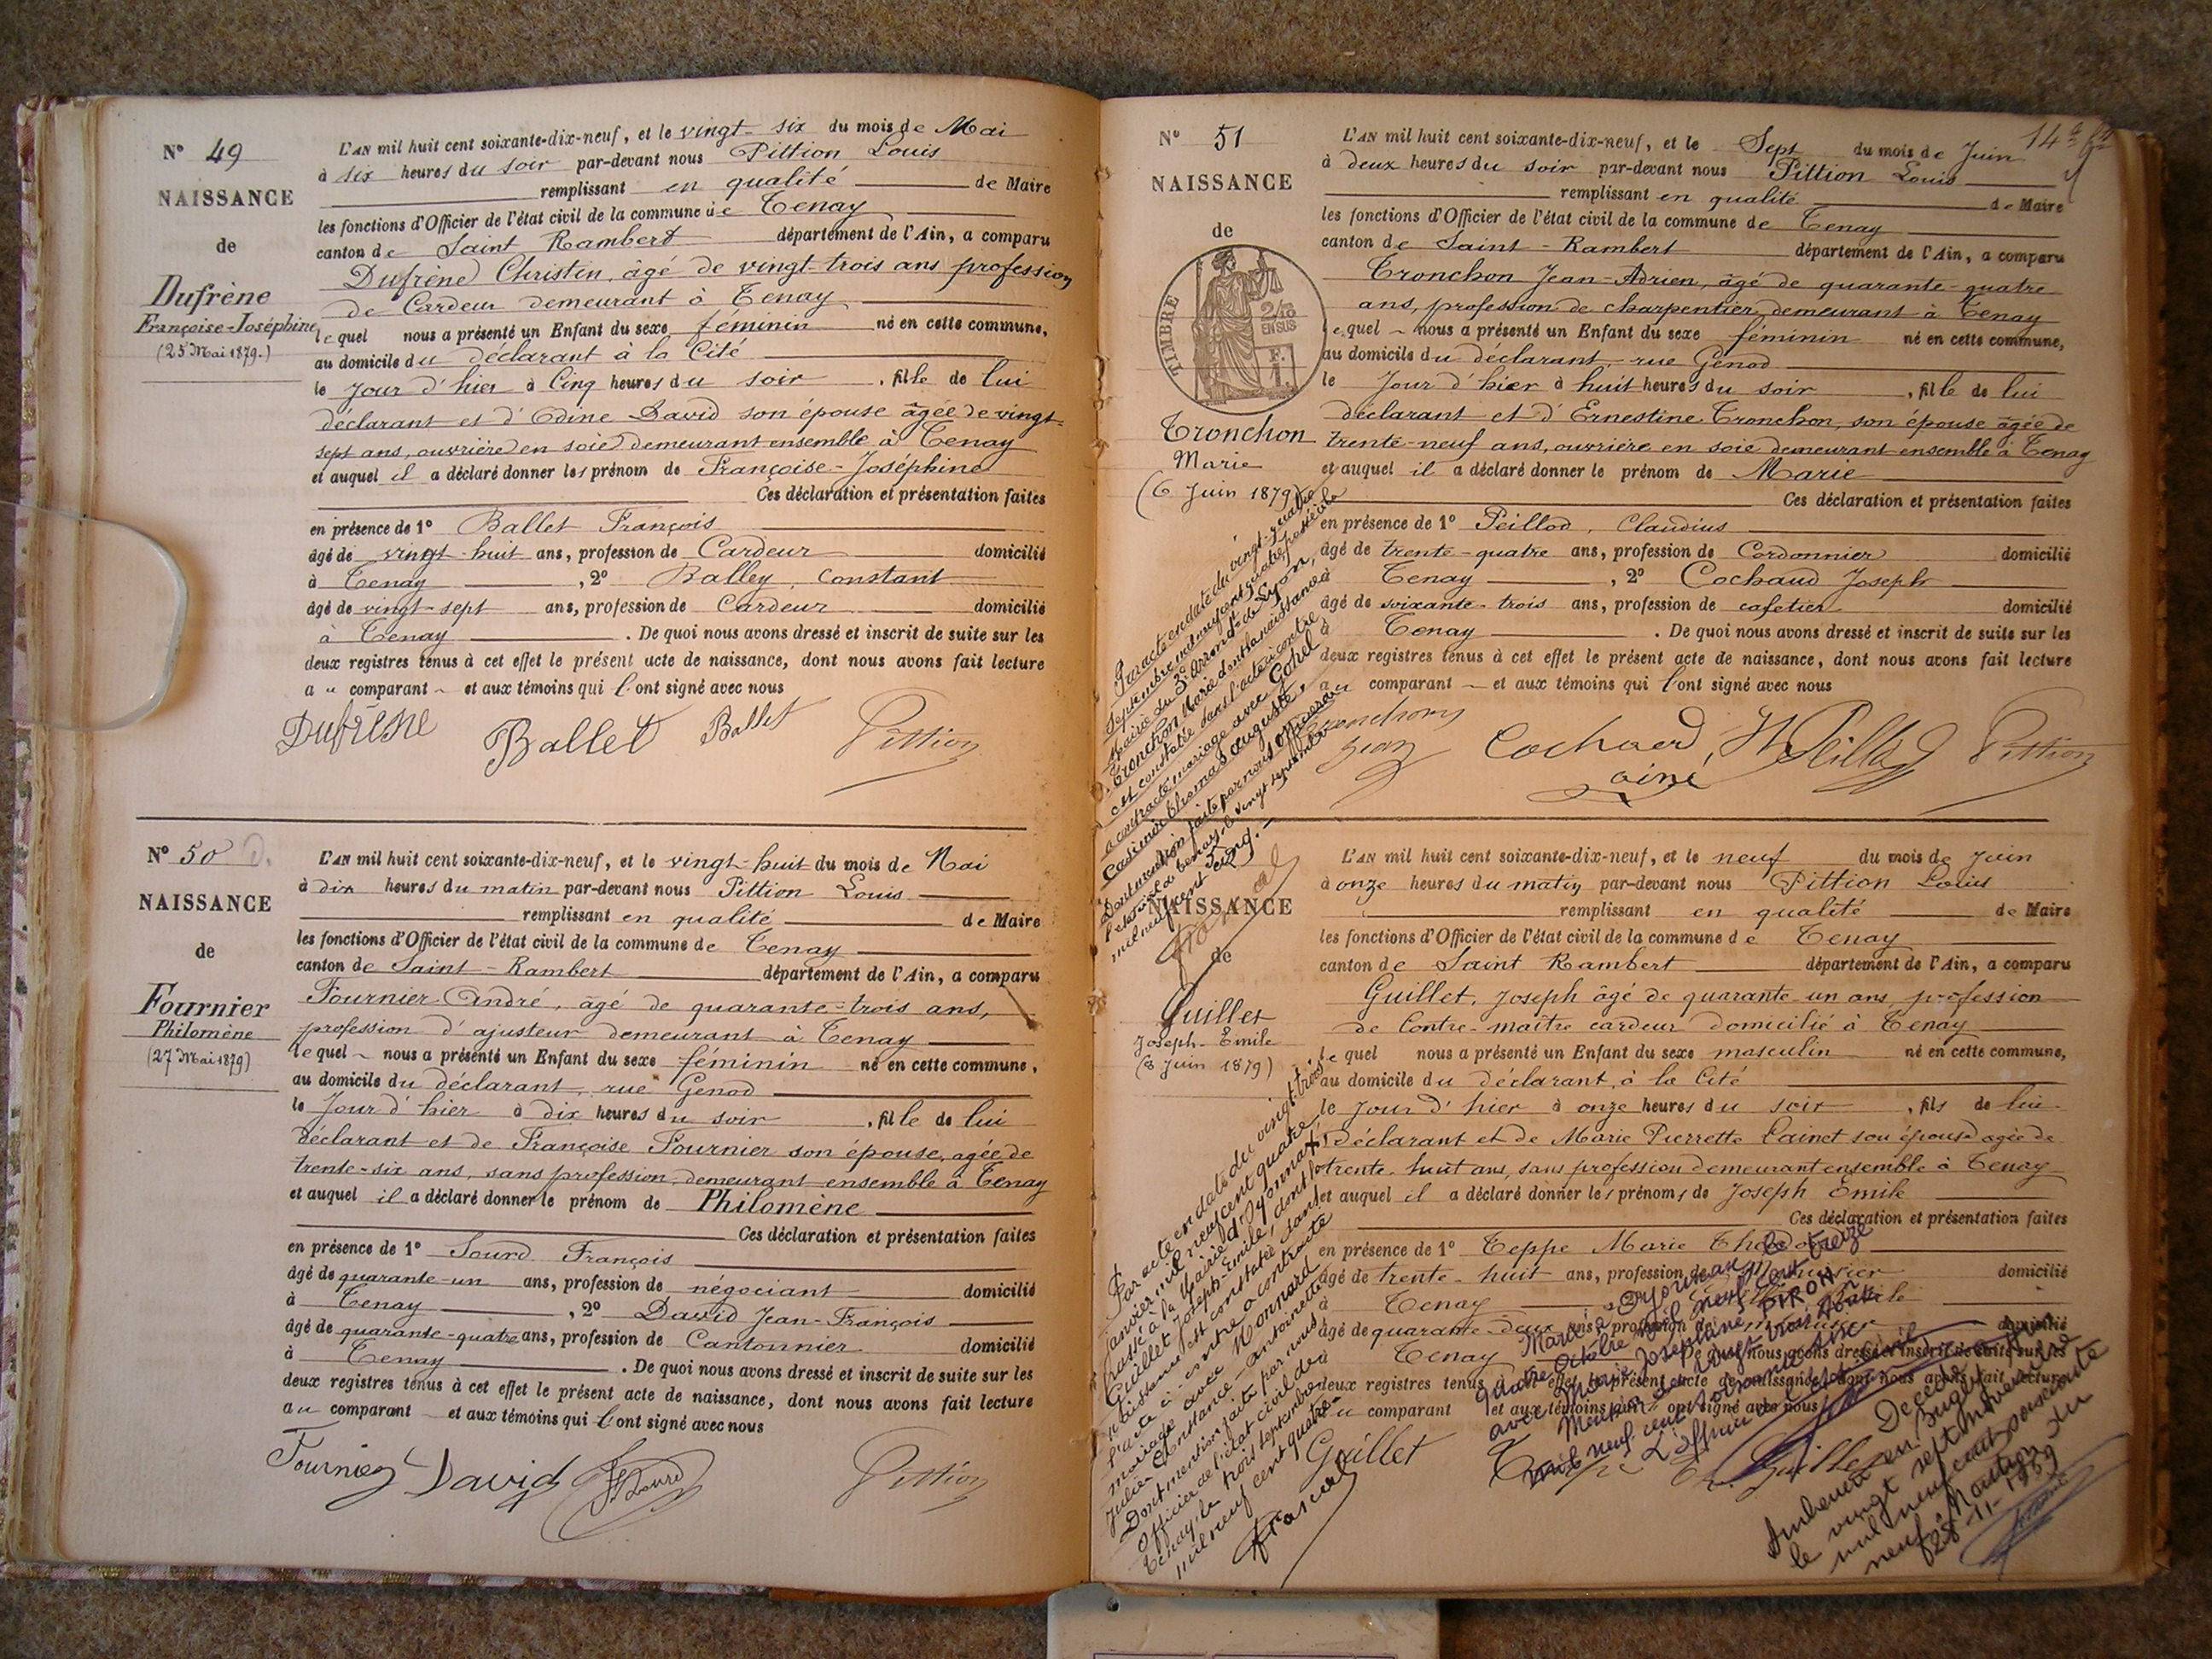 N° 49
NAISSANCE
de
Dufrène
Françoise-Joséphine
(25 Mai 1879.)
L'AN mil huit cent soixante-dix-neuf, et le vingt-six du mois de Mai
à six heures du soir par-devant nous Pittion Louis
remplissant en qualité de Maire
les fonctions d'Officier de l'état civil de la commune de Tenay
canton de Saint Rambert département de l'Ain, a comparu
Dufrène Christin, âgé de vingt-trois ans profession
de Cardeur demeurant à Tenay
lequel nous a présenté un Enfant du sexe féminin né en cette commune,
au domicile du déclarant à la Cité
le Jour d'hier à Cinq heures du soir, fille de lui
déclarant et d'Odine David son épouse âgée de vingt-
sept ans, ouvrière en soie demeurant ensemble à Tenay
et auquel il a déclaré donner les prénom de Françoise-Joséphine
Ces déclaration et présentation faites
en présence de 1° Ballet François
âgé de vingt-huit ans, profession de Cardeur domicilié
à Tenay, 2° Balley, Constant
âgé de vingt-sept ans, profession de Cardeur domicilié
à Tenay. De quoi nous avons dressé et inscrit de suite sur les
deux registres tenus à cet effet le présent acte de naissance, dont nous avons fait lecture
au comparant et aux témoins qui l'ont signé avec nous
Dufrène Ballet Ballet Pittion
N° 50 D.
NAISSANCE
de
Fournier
Philomène
(27 Mai 1879)
L'AN mil huit cent soixante-dix-neuf, et le vingt-huit du mois de Mai
à dix heures du matin par-devant nous Pittion Louis
remplissant en qualité de Maire
les fonctions d'Officier de l'état civil de la commune de Tenay
canton de Saint-Rambert département de l'Ain, a comparu
Fournier André, âgé de quarante-trois ans,
profession d'ajusteur demeurant à Tenay
lequel nous a présenté un Enfant du sexe féminin né en cette commune,
au domicile du déclarant, rue Genod
le Jour d'hier à dix heures du soir, fille de lui
déclarant et de Françoise Fournier son épouse, agée de
trente-six ans, sans profession, demeurant ensemble à Tenay
et auquel il a déclaré donner le prénom de Philomène
Ces déclaration et présentation faites
en présence de 1° Sourd François
âgé de quarante-un ans, profession de négociant domicilié
à Tenay, 2° David Jean-François
âgé de quarante-quatre ans, profession de Cantonnier domicilié
à Tenay. De quoi nous avons dressé et inscrit de suite sur les
deux registres tenus à cet effet le présent acte de naissance, dont nous avons fait lecture
au comparant et aux témoins qui l'ont signé avec nous
Fournier David F Sourd Pittion
14e ft
N° 51
NAISSANCE
de
TIMBRE
2/10
EN SUS
F.
1.
Tronchon
Marie
(6 Juin 1879)
L'AN mil huit cent soixante-dix-neuf, et le Sept du mois de Juin
à deux heures du soir par-devant nous Pittion Louis
remplissant en qualité de Maire
les fonctions d'Officier de l'état civil de la commune de Tenay
canton de Saint-Rambert département de l'Ain, a comparu
Tronchon Jean-Adrien, âgé de quarante-quatre
ans, profession de charpentier, demeurant à Tenay
lequel nous a présenté un Enfant du sexe féminin né en cette commune,
au domicile du déclarant, rue Genod
le Jour d'hier à huit heures du soir, fille de lui
déclarant et d'Ernestine Tronchon, son épouse âgée de
trente-neuf ans, ouvrière en soie demeurant ensemble à Tenay
et auquel il a déclaré donner le prénom de Marie
Ces déclaration et présentation faites
en présence de 1° Peillod, Claudius
âgé de trente-quatre ans, profession de Cordonnier domicilié
à Tenay, 2° Cochaud Joseph
âgé de soixante-trois ans, profession de cafetier domicilié
à Tenay. De quoi nous avons dressé et inscrit de suite sur les
deux registres tenus à cet effet le présent acte de naissance, dont nous avons fait lecture
au comparant et aux témoins qui l'ont signé avec nous
Tronchon Jean Cochard ainé Peillod Pittion
Par acte en date du vingt-quatre
septembre mil neuf cent quatre passé à la
Mairie du 3e arrondt de Lyon,
Tronchon Marie dont la naissance
est constatée dans l'acte ci-contre
a contracté mariage avec Gohel
Casimir Thomas Auguste,
Dont mention faite par nous officier de
l'état civil à Tenay, le vingt septembre
mil neuf cent cinq.
NAISSANCE
de
Guillet
Joseph-Émile
(8 Juin 1879)
L'AN mil huit cent soixante-dix-neuf, et le neuf du mois de Juin
à onze heures du matin par-devant nous Pittion Louis
remplissant en qualité de Maire
les fonctions d'Officier de l'état civil de la commune de Tenay
canton de Saint Rambert département de l'Ain, a comparu
Guillet, Joseph âgé de quarante-un ans, profession
de Contre-maître cardeur domicilié à Tenay
lequel nous a présenté un Enfant du sexe masculin né en cette commune,
au domicile du déclarant, à la Cité
le Jour d'hier à onze heures du soir, fils de lui
déclarant et de Marie Pierrette Cainet son épouse agée de
trente-huit ans, sans profession demeurant ensemble à Tenay
et auquel il a déclaré donner les prénoms de Joseph Émile
Ces déclaration et présentation faites
en présence de 1° Teppe Marie
âgé de trente-huit ans, profession de domicilié
à Tenay
âgé de quarante-deux ans, profession de domicilié
à Tenay De quoi nous avons dressé et inscrit de suite sur les
deux registres tenus à cet effet le présent acte de naissance, dont nous avons fait lecture
au comparant et aux témoins qui l'ont signé avec nous
Guillet
Par acte en date du vingt-trois
janvier mil neuf cent quatre
passé à la Mairie d'Oyonnax,
Guillet Joseph-Émile, dont la
naissance est constatée dans
l'acte ci-contre a contracté
mariage avec Monnard
Julie Constance Antoinette
Dont mention faite par nous
officier de l'état civil de
Tenay, le trois septembre
mil neuf cent quatre
Marié à Oyonnax le
quatre Octobre mil neuf cent treize
avec Marie Joséphine PIROU
Mention le vingt trois Août
mil neuf cent soixante six
L'officier de l'état civil,
Décédé à
Ambérieu en Bugey
le vingt septembre
mil neuf cent cinquante
neuf. Mention du
28-11-1959